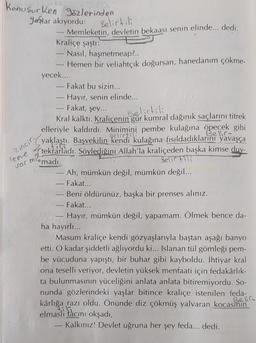 Konuşurken gözlerinden
yaşlar akıyordu: Belirtili
— Memleketin, devletin bekaası senin elinde... dedi.
Kraliçe şaştı:
— Nasıl, haşmetmeap?..
— Hemen bir veliahtçık doğursan, hanedanım çökme-
yecek...
— Fakat bu sizin...
— Hayır, senin elinde...
— Fakat, şey...
Belirtili
Kral kalktı. Kraliçenin gür kumral dağınık saçlarını titrek
elleriyle kaldırdı. Minimini pembe kulağına öpecek gibi
yaklaştı. Başvekilin kendi kulağına fısıldadıklarını yavaşça
tekrarladı. Söylediğini Allah'la kraliçeden başka kimse duy-
madı. Belirtili
— Ah, mümkün değil, mümkün değil...
— Fakat...
— Beni öldürünüz, başka bir prenses alınız.
— Fakat...
— Hayır, mümkün değil, yapamam. Ölmek bence da-
ha hayırlı...
Masum kraliçe kendi gözyaşlarıyla baştan aşağı banyo
etti. O kadar şiddetli ağlıyordu ki... Islanan tül gömleği pem-
be vücuduna yapıştı, bir buhar gibi kayboldu. İhtiyar kral
ona teselli veriyor, devletin yüksek menfaati için fedakârlık-
ta bulunmasının yüceliğini anlata anlata bitiremiyordu. So-
nunda gözlerindeki yaşlar bitince kraliçe istenilen feda-
kârlığa razı oldu. Önünde diz çökmüş yalvaran kocasının
elmaslı tacını okşadı,
— Kalkınız! Devlet uğruna her şey feda... dedi.